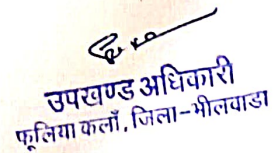 उपखण्ड अधिकारी
फूलिया कलाँ, जिला-भीलवाडा